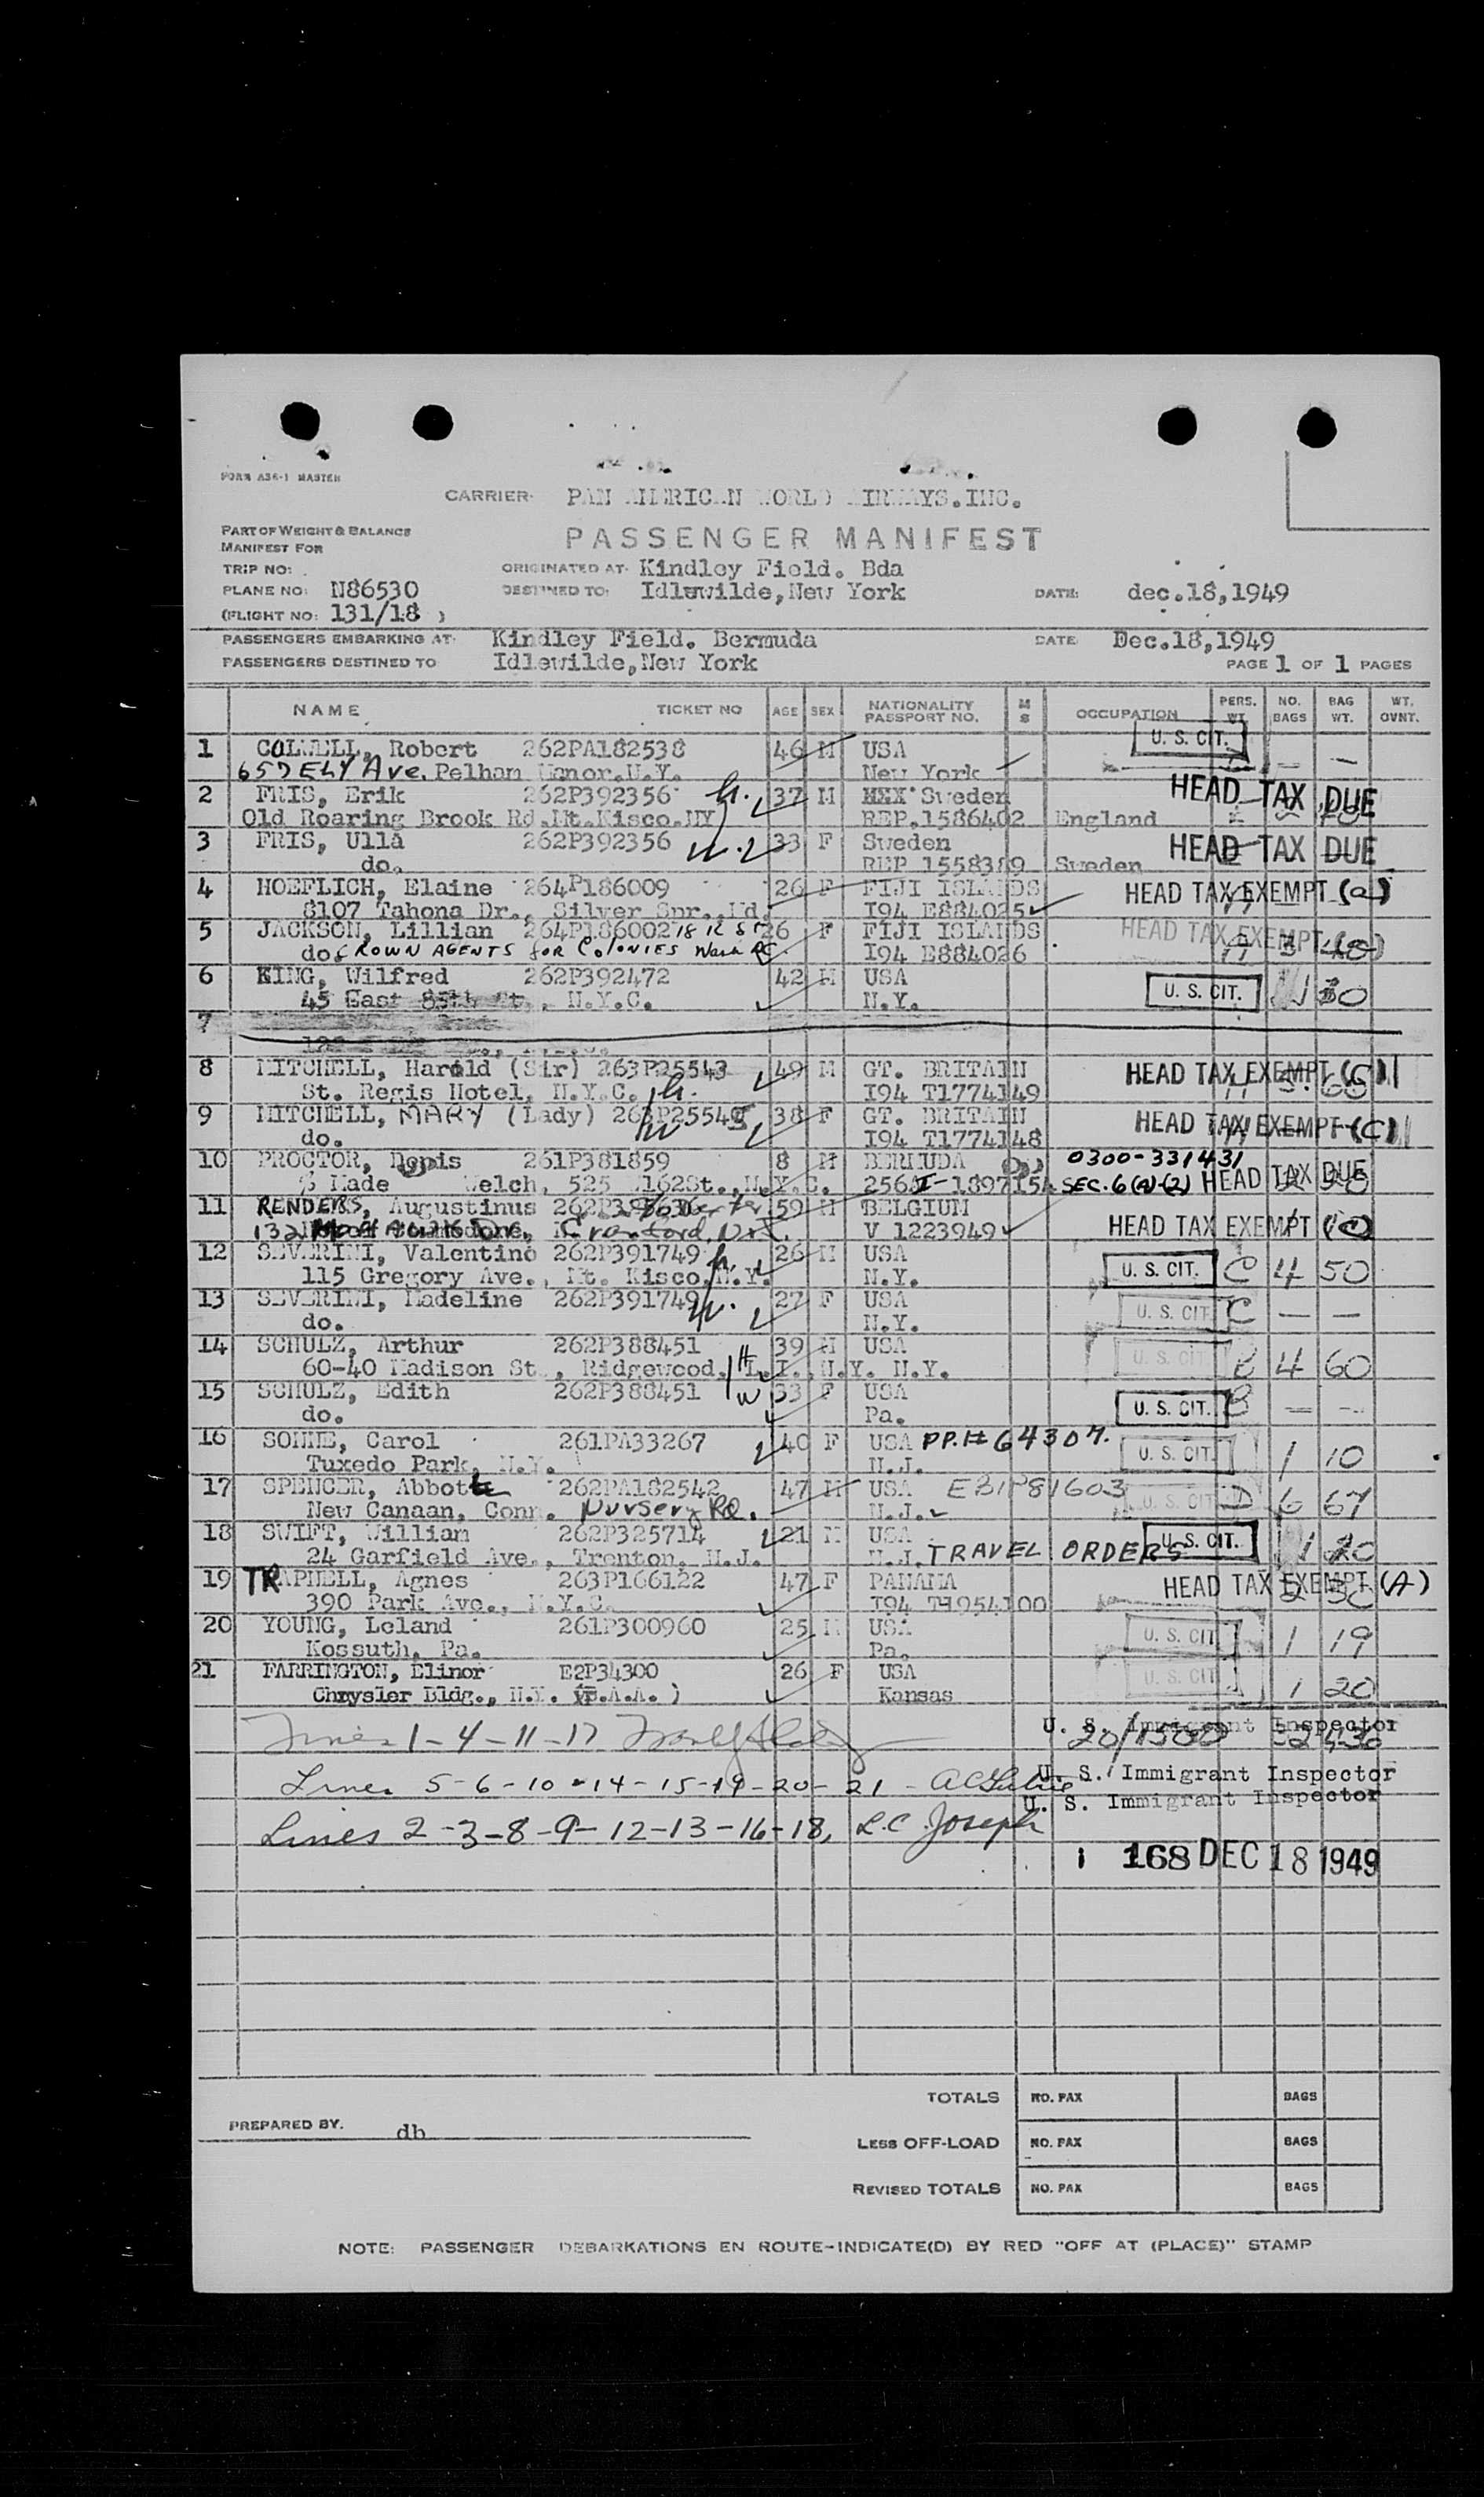 FORM A36-1 MASTER
CARRIER: PAN AMERICAN WORLD AIRWAYS.INC.
PART OF WEIGHT & BALANCE
MANIFEST FOR
PASSENGER MANIFEST
TRIP NO:
ORIGINATED AT: Kindley Field. Bda
PLANE NO: N86530
DESTINED TO: Idlewilde, New York
DATE: dec.18,1949
(FLIGHT NO: 131/18 )
PASSENGERS EMBARKING AT: Kindley Field. Bermuda
DATE Dec.18,1949
PASSENGERS DESTINED TO Idlewilde, New York
PAGE 1 OF 1 PAGES
NAME TICKET NO AGE SEX NATIONALITY PASSPORT NO. M S OCCUPATION PERS. WT. NO. BAGS BAG WT. WT. OVNT.
1 COLWELL, Robert 262PA182538 46 M USA U. S. CIT. — —
657 ELY Ave. Pelham Manor.N.Y. New York
2 FRIS, Erik 262P392356 h. 37 M Sweden HEAD TAX DUE
Old Roaring Brook Rd.Mt.Kisco.NY REP.1586402 England
3 FRIS, Ulla 262P392356 w. 33 F Sweden HEAD TAX DUE
do. REP 1558389 Sweden
4 HOEFLICH, Elaine 264P186009 26 F FIJI ISLANDS HEAD TAX EXEMPT (a)
8107 Tahona Dr., Silver Spr., Md. I94 E884025
5 JACKSON, Lillian 264P186002 18 K ST 26 F FIJI ISLANDS HEAD TAX EXEMPT (a)
do. CROWN AGENTS FOR COLONIES Wash DC. I94 E884026
6 KING, Wilfred 262P392472 42 M USA
45 East 85th St., N.Y.C. N.Y. U. S. CIT. 1 30
7
8 MITCHELL, Harold (Sir) 263P25543 49 M GT. BRITAIN HEAD TAX EXEMPT (C)
St. Regis Hotel, N.Y.C. h. I94 T1774149
9 MITCHELL, MARY (Lady) 263P25545 38 F GT. BRITAIN HEAD TAX EXEMPT (C)
do. w I94 T1774148
10 PROCTOR, Denis 261P381859 8 M BERMUDA 0300-331431
% Made Welch, 525 W162St., N.Y.C. 256A I-189715A SEC. 6 (A)-(2) HEAD TAX DUE
11 RENDERS, Augustinus 59 M BELGIUM
132 Dr., Cranford, N.J. V 1223949 HEAD TAX EXEMPT (C)
12 SEVERINI, Valentino 262P391749 h. 26 M USA
115 Gregory Ave., Mt. Kisco, N.Y. N.Y. U. S. CIT. C 4 50
13 SEVERINI, Madeline 262P391749 w. 27 F USA
do. N.Y. U. S. CIT. C — —
14 SCHULZ, Arthur 262P388451 39 M USA
60-40 Madison St., Ridgewood, L.I., N.Y. N.Y. H U. S. CIT. B 4 60
15 SCHULZ, Edith 262P388451 W 33 F USA
do. Pa. U. S. CIT. B — —
16 SOHNE, Carol 261PA33267 40 F USA PP.# 64307.
Tuxedo Park, N.Y. N.J. U. S. CIT. 1 10
17 SPENCER, Abbott 262PA182542 47 M USA EBIP81603
New Canaan, Conn. Nursery Rd. N.J. U. S. CIT. D 6 67
18 SWIFT, William 262P325714 21 M USA
24 Garfield Ave., Trenton, N.J. N.J. TRAVEL ORDERS U. S. CIT. 1 20
19 TRAPHELL, Agnes 263P166122 47 F PANAMA HEAD TAX EXEMPT (A)
390 Park Ave., N.Y.C. I94 T1954100
20 YOUNG, Leland 261P300960 25 M USA
Kossuth, Pa. Pa. U. S. CIT. 1 19
21 FARRINGTON, Elinor E2P34300 26 F USA
Chrysler Bldg., N.Y. (P.A.A.) Kansas U. S. CIT. 1 20
Lines 1-4-11-17 U. S. Immigrant Inspector
Lines 5-6-10-14-15-19-20-21 U. S. Immigrant Inspector
U. S. Immigrant Inspector
Lines 2-3-8-9-12-13-16-18, L.C. Joseph
1 168 DEC 18 1949
TOTALS NO. PAX BAGS
PREPARED BY. db
LESS OFF-LOAD NO. PAX BAGS
REVISED TOTALS NO. PAX BAGS
NOTE: PASSENGER DEBARKATIONS EN ROUTE-INDICATE(D) BY RED "OFF AT (PLACE)" STAMP